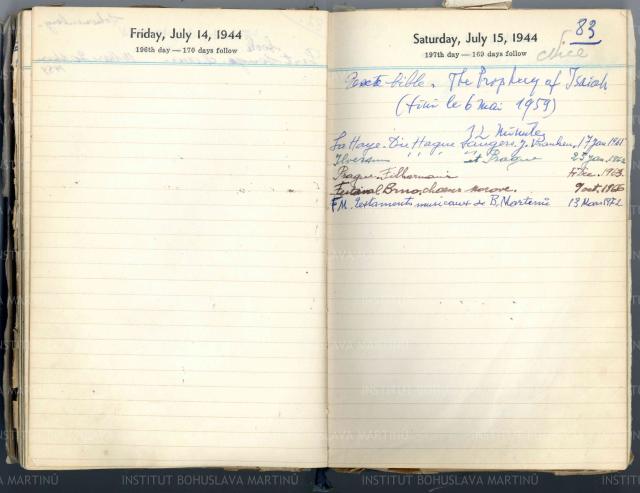 Friday, July 14, 1944
196th day — 170 days follow
83
Saturday, July 15, 1944
197th day — 169 days follow
bible. The Prophecy of Isaiah
(fini le 6 mai 1959)
32 Minutes
La Haye. Die Haague Zangers, 17 Jan 1961
et Prague 25 Jan.
Prague, Filharmonie 1963.
Festival, Brno, choeurs
F.M. testaments musicaux de B. Martinů 13 Mars 1972
INSTITUT BOHUSLAVA MARTINŮ